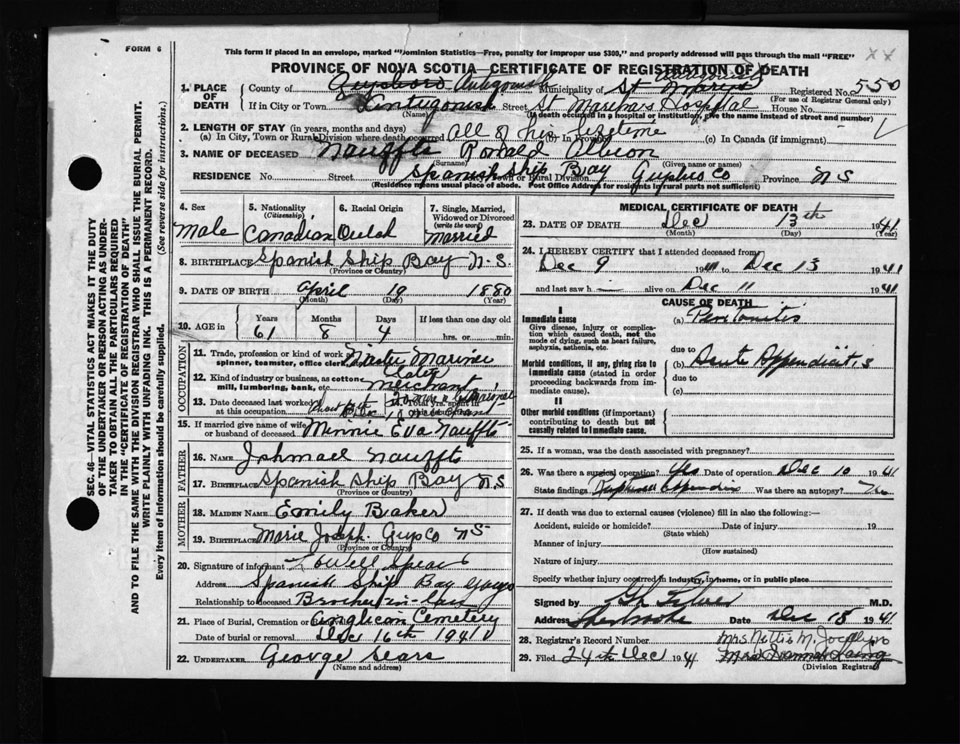 FORM 6
This form if placed in an envelope, marked "Dominion Statistics—Free, penalty for improper use $300," and properly addressed will pass through the mail "FREE"
XX
PROVINCE OF NOVA SCOTIA—CERTIFICATE OF REGISTRATION OF DEATH
1. PLACE OF DEATH
County of Guysboro Antigonish Municipality of St Marys Registered No. 550
(For use of Registrar General only)
If in City or Town Antigonish Street St Martha's Hospital House No.
(Name) (If death occurred in a hospital or institution, give the name instead of street and number)
2. LENGTH OF STAY (in years, months and days)
(a) In City, Town or Rural Division where death occurred All of his lifetime (b) In Province (c) In Canada (if immigrant)
3. NAME OF DECEASED Nauffts Ronald
(Surname) (Given name or names)
RESIDENCE No. Street Spanish Ship Bay Guysboro Co Province N S
City, Town or Rural Division
(Residence means usual place of abode. Post Office Address for residents in rural parts not sufficient)
4. Sex
Male
5. Nationality (Citizenship)
Canadian
6. Racial Origin
Dutch
7. Single, Married, Widowed or Divorced (write the word)
Married
8. BIRTHPLACE Spanish Ship Bay N.S.
(Province or Country)
9. DATE OF BIRTH April 19 1880
(Month) (Day) (Year)
10. AGE in
Years Months Days If less than one day old
61 8 4 hrs. or min.
OCCUPATION
11. Trade, profession or kind of work as spinner, teamster, office clerk, etc. Master Mariner
12. Kind of industry or business, as cotton mill, lumbering, bank, etc. Later Merchant
13. Date deceased last worked at this occupation
14. Total yrs. spent in this occupation
15. If married give name of wife or husband of deceased Minnie Eva Nauffts
FATHER
16. NAME Ishmael Nauffts
17. BIRTHPLACE Spanish Ship Bay N.S
(Province or Country)
MOTHER
18. MAIDEN NAME Emily Baker
19. BIRTHPLACE Marie Joseph Guys Co N S
(Province or Country)
20. Signature of informant Lowell Spears
Address Spanish Ship Bay Guysboro
Relationship to deceased Brother-in-law
21. Place of Burial, Cremation or Removal Anglican Cemetery
Date of burial or removal Dec 16th 1941
22. UNDERTAKER George Sears
(Name and address)
MEDICAL CERTIFICATE OF DEATH
23. DATE OF DEATH Dec 13th 1941
(Month) (Day) (Year)
24. I HEREBY CERTIFY that I attended deceased from
Dec 9 1941 to Dec 13 1941
and last saw h alive on Dec 11 1941
CAUSE OF DEATH
I
Immediate cause (a) Peritonitis
Give disease, injury or complication which caused death, not the mode of dying, such as heart failure, asphyxia, asthenia, etc.
due to
Morbid conditions, if any, giving rise to immediate cause (stated in order proceeding backwards from immediate cause).
(b) Acute Appendicitis
due to
(c)
II
Other morbid conditions (if important) contributing to death but not causally related to immediate cause.
25. If a woman, was the death associated with pregnancy?
26. Was there a surgical operation? Yes Date of operation Dec 10 1941
State findings Ruptured Appendix Was there an autopsy? No
27. If death was due to external causes (violence) fill in also the following:—
Accident, suicide or homicide? Date of injury 19
(State which)
Manner of injury
(How sustained)
Nature of injury
Specify whether injury occurred in industry, in home, or in public place
Signed by M.D.
Address Sherbrooke Date Dec 18 1941
28. Registrar's Record Number Mrs. Nettie M. Jocelyn
29. Filed 24th Dec 1941
(Division Registrar)
SEC. 46—VITAL STATISTICS ACT MAKES IT THE DUTY
OF THE UNDERTAKER OR PERSON ACTING AS UNDERTAKER TO OBTAIN ALL THE PARTICULARS REQUIRED
IN THE "CERTIFICATE OF REGISTRATION OF DEATH"
AND TO FILE THE SAME WITH THE DIVISION REGISTRAR WHO SHALL ISSUE THE BURIAL PERMIT.
WRITE PLAINLY WITH UNFADING INK. THIS IS A PERMANENT RECORD.
Every item of information should be carefully supplied. (See reverse side for instructions.)